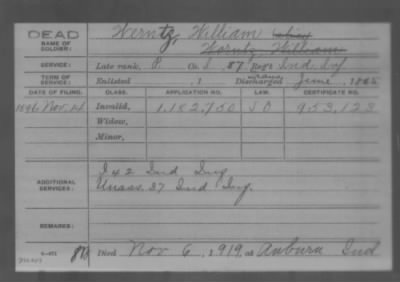 DEAD
NAME OF SOLDIER:
Werntz, William
Worntz, William
SERVICE:
Late rank, P. Co. , 37 Reg't Ind. Inf
TERM OF SERVICE:
Enlisted , 1 Discharged June , 1865
DATE OF FILING. CLASS. APPLICATION NO. LAW. CERTIFICATE NO.
1896 Nov. Invalid, 1.182.750 953.123
Widow,
Minor,
ADDITIONAL SERVICES:
I 42 Ind Inf
Unass. 37 Ind Inf.
REMARKS:
Died Nov 6, 1919, at Auburn Ind